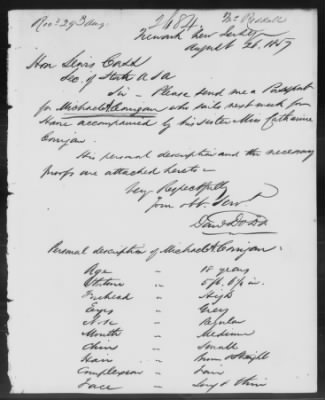 Newark New Jersey
August 28. 1857
Hon Lewis Cass
Sec. of State U S A
Sir - Please send me a Passport
for Michael A. Corrigan who sails next week for
Havre accompanied by his sister Miss Catharine
Corrigan.
His personal description and the necessary
proofs are attached hereto -
Very Respectfully
Your obt. Servt.
Personal description of Michael A. Corrigan.
Age " 18 years
Stature " 5 ft. 6½ in.
Forehead " High
Eyes " Grey
Nose " Regular
Mouth " Medium
Chin " Small
Hair " Brown & Straight
Complexion " Fair
Face " Long & thin